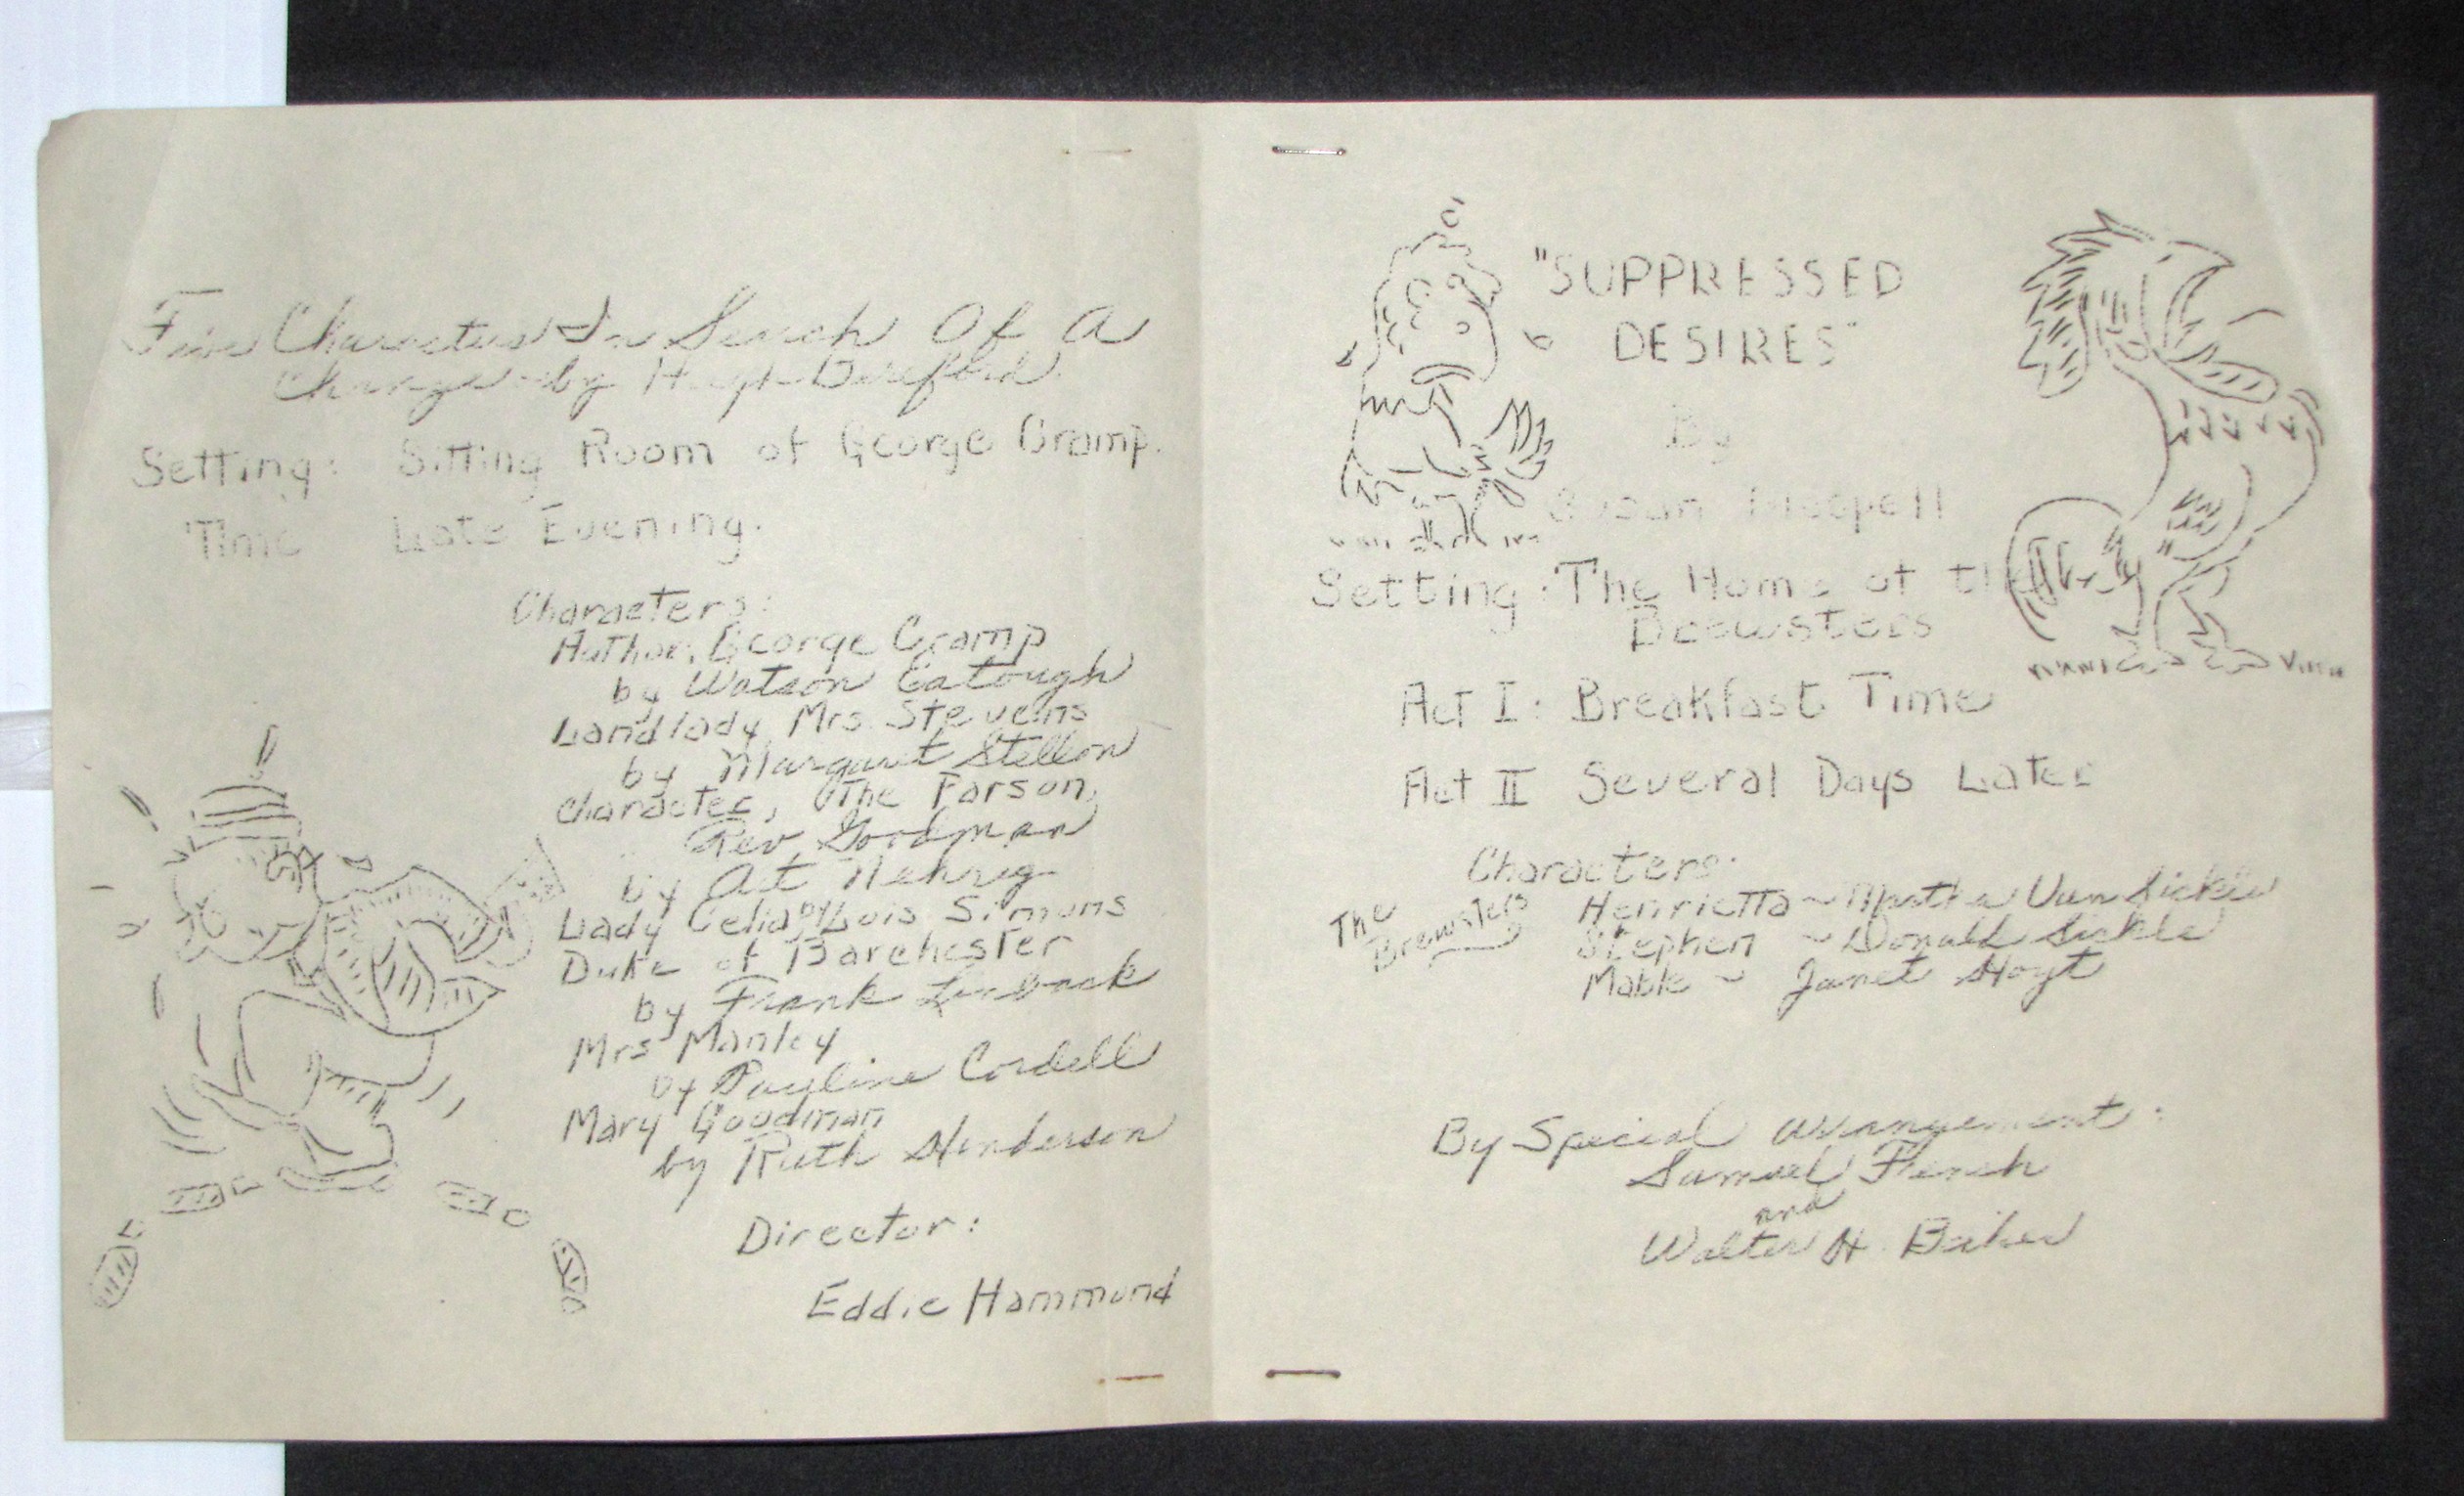 Five Characters In Search Of A
Change - by Hugh Beresford.
Setting: Sitting Room of George Gramp.
Time Late Evening.
Characters:
Author, George Gramp
by Watson Eatough
Landlady Mrs. Stevens
by Margaret
Character, The Parson,
Rev Goodman
by Art Nehrig
Lady Celia by Lois Simons
Duke of Barchester
by Frank
Mrs Manley
by Pauline Cordell
Mary Goodman
by Ruth Henderson
Director:
Eddie Hammond
"SUPPRESSED
DESIRES"
By
Susan Glaspell
Setting: The Home of the
Brewsters
Act I: Breakfast Time
Act II Several Days Later
Characters:
The Brewsters
Henrietta ~ Martha Van Sickle
Stephen ~ Donald Sickle
Mable ~ Janet Hoyt
By Special arrangement:
Samuel French
and
Walter H. Baker